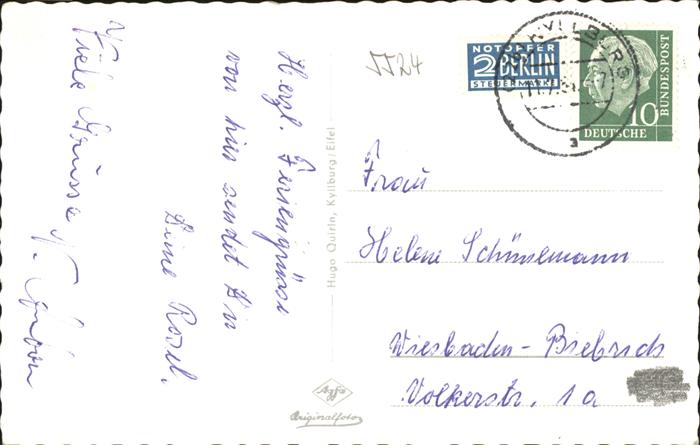 Herzl. Feriengrüsse
von hier sendet Dir
Deine Rosel.
Viele Grüsse
Hugo Quirin, Kyllburg/Eifel
Agfa
Originalfoto
JJ24
NOTOPFER
2 BERLIN
STEUERMARKE
KYLLBURG
a
10
DEUTSCHE
BUNDESPOST
Frau
Helene Schünemann
Wiesbaden-Biebrich
Volkerstr. 1a